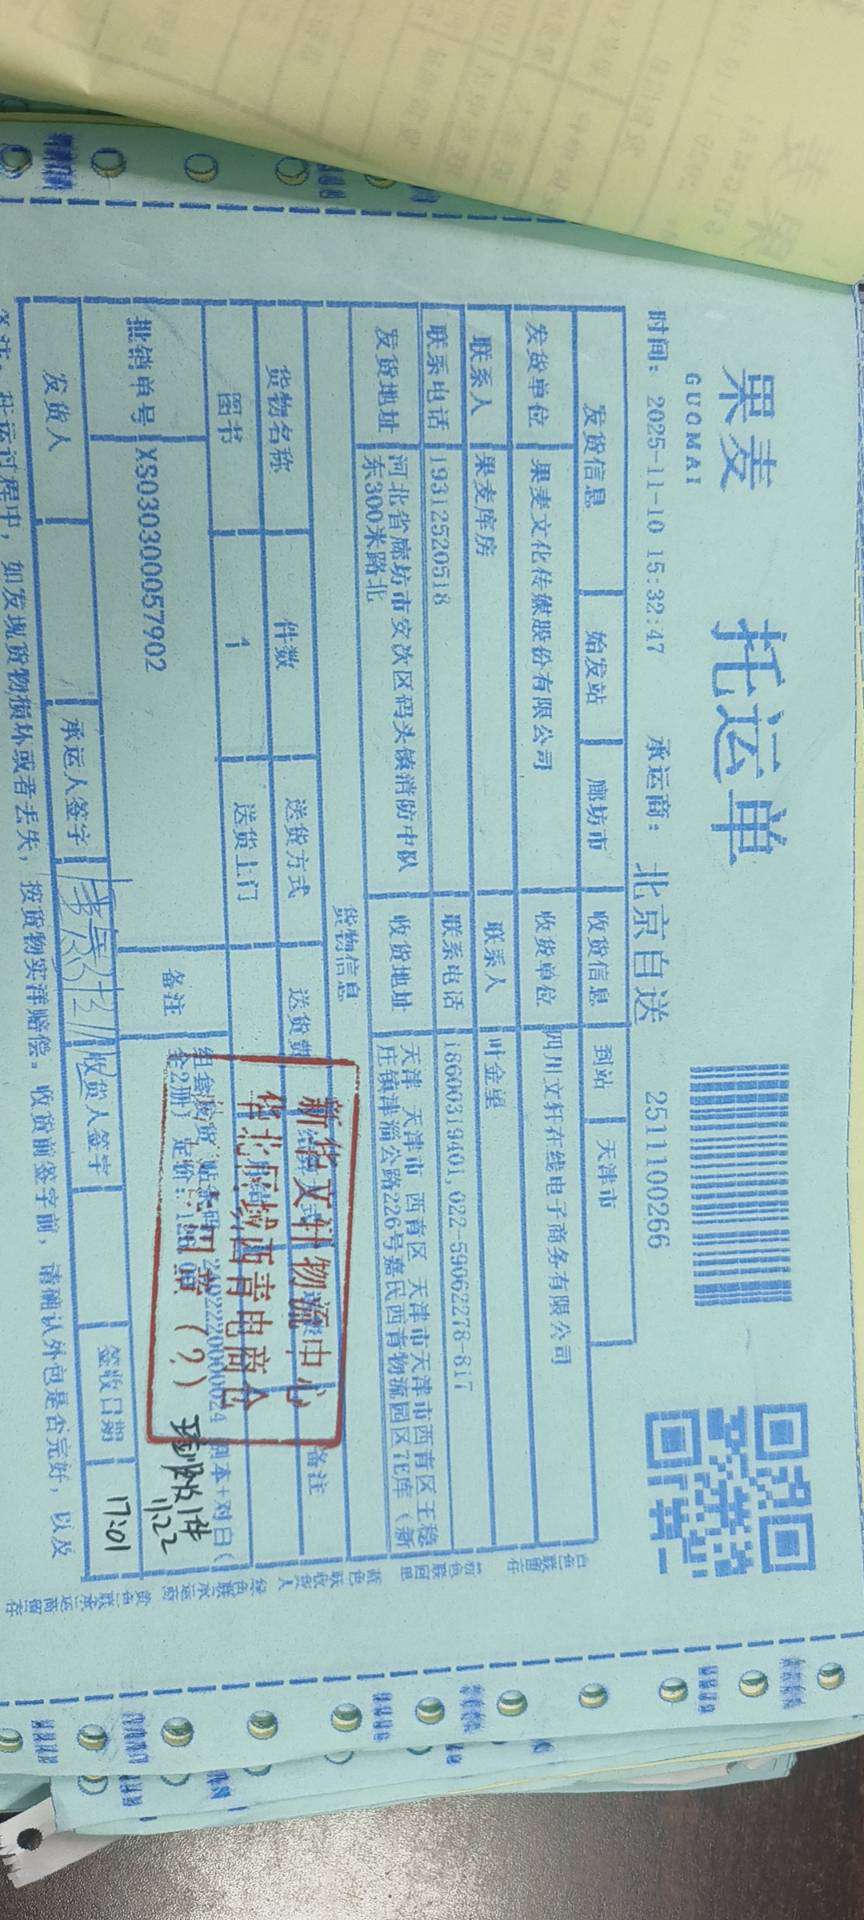 果麦
GUOMAI
托运单
时间: 2025-11-10 15:32:47 承运商: 北京自送 2511100266
发货信息 始发站 廊坊市 收货信息 到站 天津市
发货单位 果麦文化传媒股份有限公司 收货单位 四川文轩在线电子商务有限公司
联系人 果麦库房 联系人 叶金星
联系电话 19312520518 联系电话 18600319401,022-59062278-817
发货地址 河北省廊坊市安次区码头镇消防中队
东300米路北
收货地址 天津 天津市 西青区 天津市天津市西青区王稳
庄镇津淄公路226号嘉民西青物流园区7E库(新
货物信息
货物名称 件数 送货方式 送货费 备注
图书 1 送货上门
批销单号 XS0303000057902 备注
全2册) 定价:
脚本+对白(
新华文轩物流中心
华北区域西青电商仓
(2)
1件
11.22
发货人 承运人签字 收货人签字 签收日期 17:01
备注: 托运过程中, 如发现货物损坏或者丢失, 按货物实洋赔偿。收货前签字前, 请确认外包是否完好, 以及
白色联留存
粉色联回单
蓝色联收货人
绿色联承运商
黄色联承运商留存